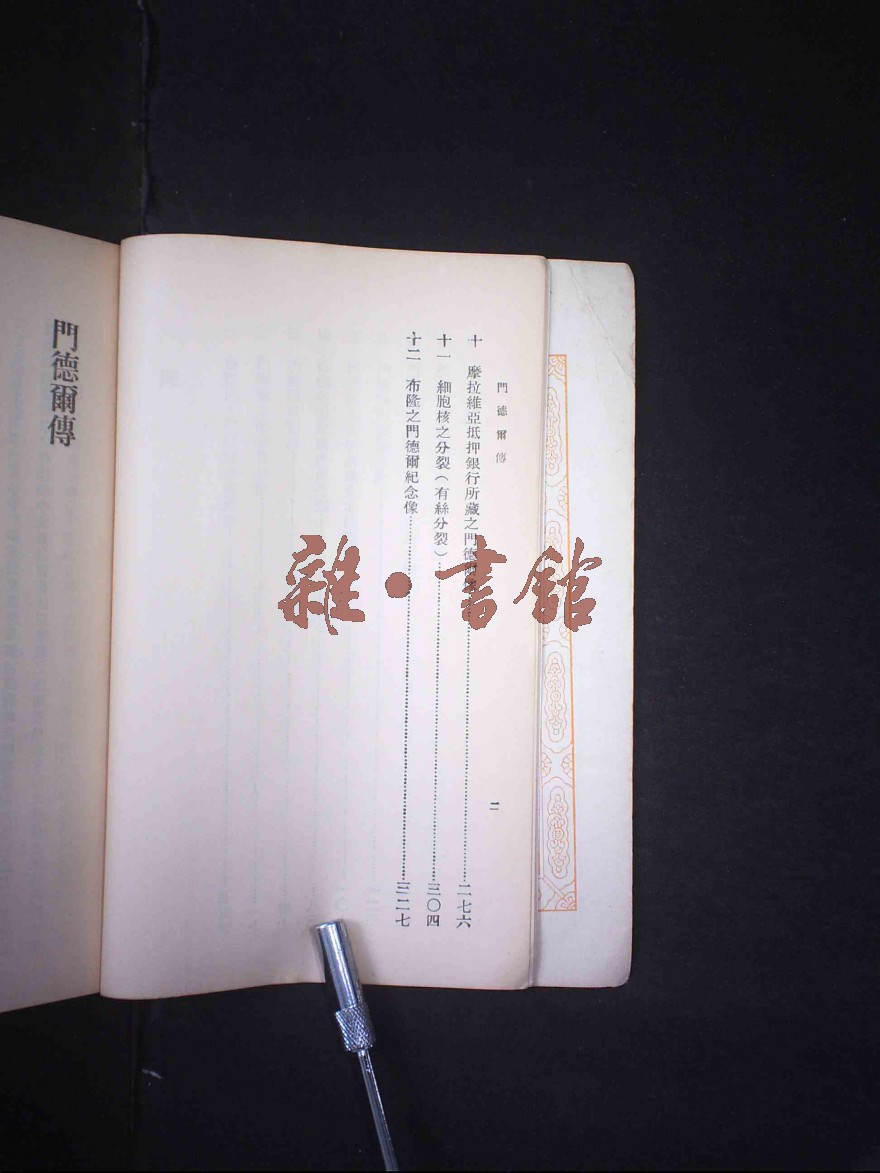 門德爾傳
二
十　摩拉維亞抵押銀行所藏之門德爾像……二七六
十一　細胞核之分裂（有絲分裂）……三〇四
十二　布隆之門德爾紀念像……三二七
門德爾傳
雜•書館